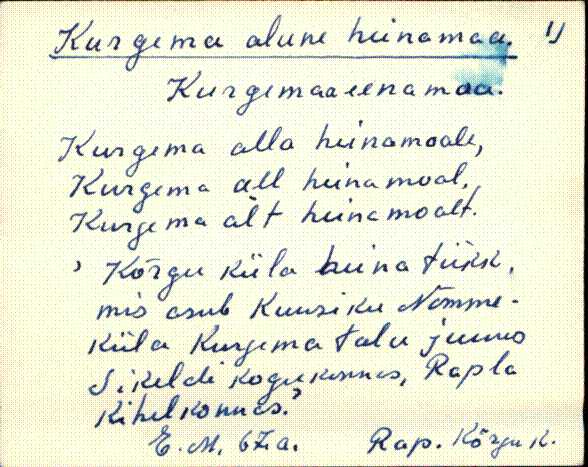 Kurgema alune heinamaa. 1)
Kurgemaaeenamaa.
Kurgema alla heinamaale,
Kurgema all heinamaal,
Kurgema alt heinamaalt.
' Kõrgu küla heinatükk,
mis asub Kuusiku Nõmme-
küla Kurgema talu juures
Sikeldi kogukonnas, Rapla
kihelkonnas.'
E. M. 67a. Rap. Kõrgu k.